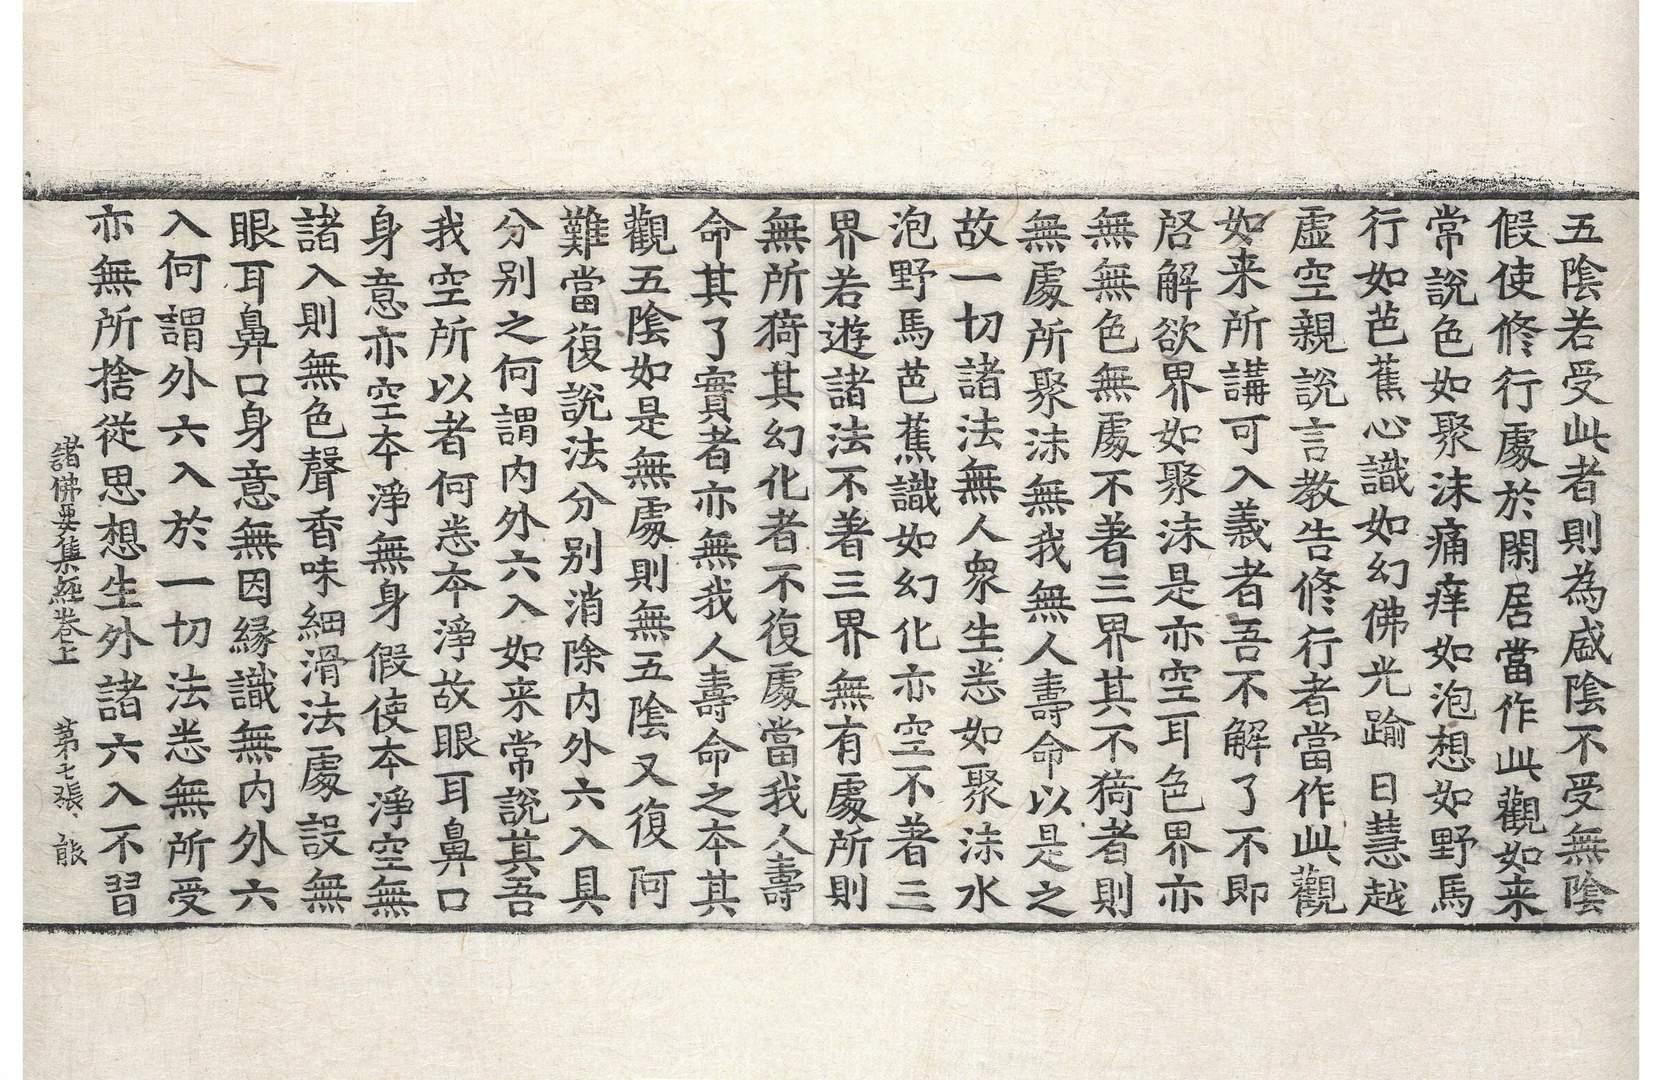 五陰若受此者則為盛陰不受無陰
假使修行處於閑居當作此觀如来
常說色如聚沫痛痒如泡想如野馬
行如芭蕉心識如幻佛光踰日慧越
虛空親說言教告修行者當作此觀
如来所講可入義者吾不解了不即
啓解欲界如聚沫是亦空耳色界亦
無無色無處不著三界其不猗者則
無處所聚沫無我無人壽命以是之
故一切諸法無人衆生悉如聚沫水
泡野馬芭蕉識如幻化亦空不著三
界若遊諸法不著三界無有處所則
無所猗其幻化者不復處當我人壽
命其了實者亦無我人壽命之本其
觀五陰如是無處則無五陰又復阿
難當復說法分別消除內外六入具
分別之何謂內外六入如来常說其吾
我空所以者何悉本淨故眼耳鼻口
身意亦空本淨無身假使本淨空無
諸入則無色聲香味細滑法處設無
眼耳鼻口身意無因緣識無內外六
入何謂外六入於一切法悉無所受
亦無所捨從思想生外諸六入不習
諸佛要集經卷上　第七張　能